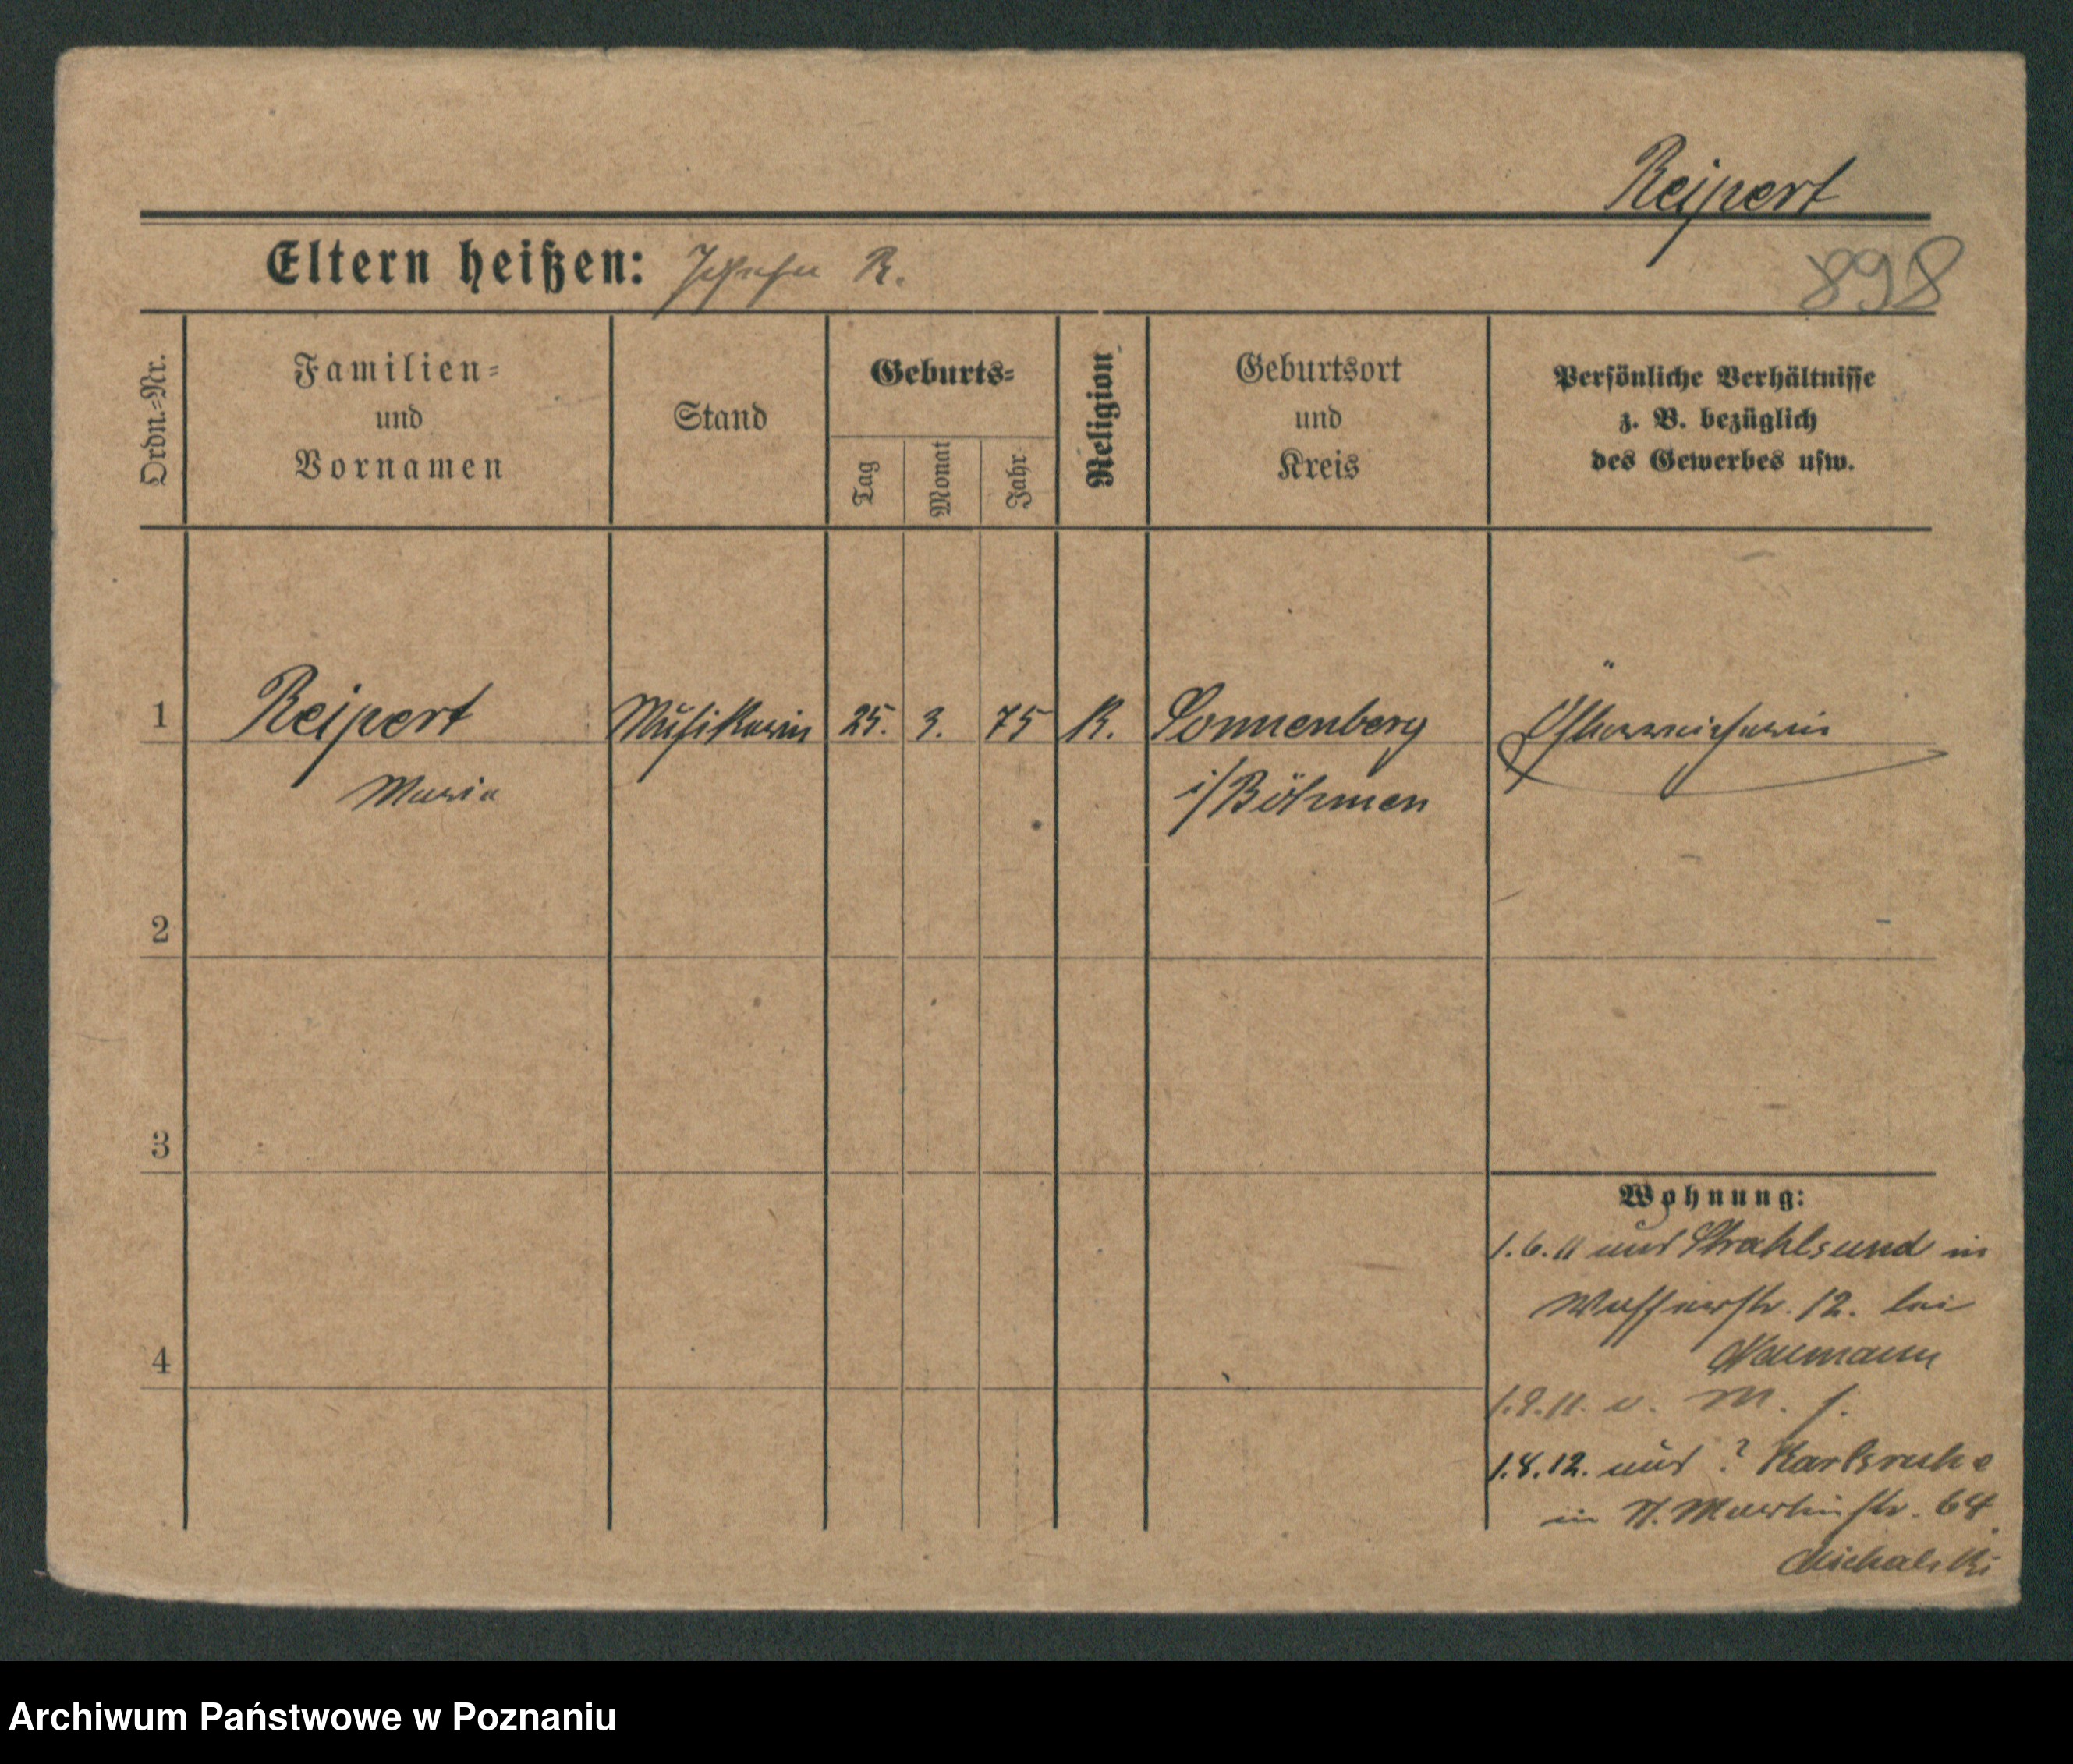 Reipert
Eltern heißen: R.
898
Ordn.=Nr.
Familien=
und
Vornamen
Stand
Geburts=
Tag
Monat
Jahr
Religion
Geburtsort
und
Kreis
Persönliche Verhältnisse
z. B. bezüglich
des Gewerbes usw.
1 Reipert Musikerin 25. 3. 75 K. Sonnenberg Österreicherin
Maria i/Böhmen
2
3
4
Wohnung:
1.6.11 aus Strahlsund in
Wasserstr. 12. bei
Naumann
1.9.11. u. M. f.
1.8.12. aus ? Karlsruhe
in St. Martinstr. 64.
Michalski
Archiwum Państwowe w Poznaniu